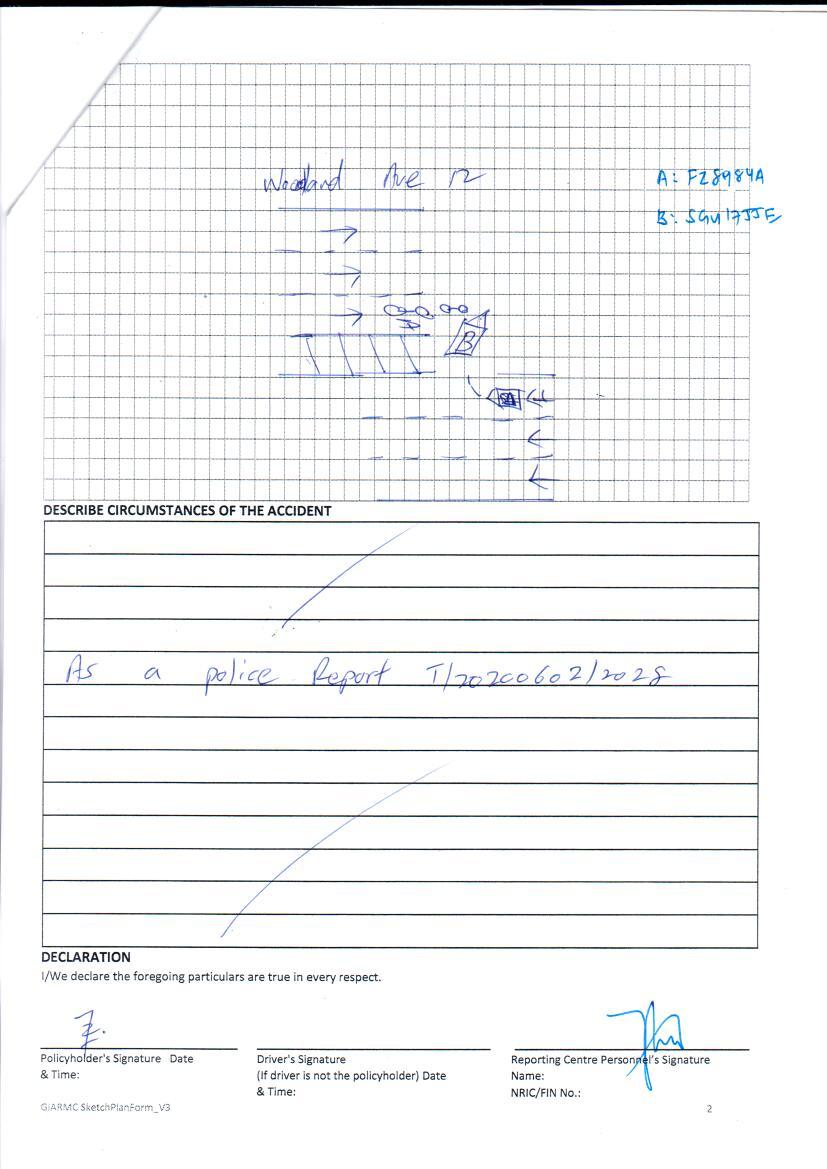 Woodland Ave 12
A: FZ8984A
B: SGU1755E
B
A
DESCRIBE CIRCUMSTANCES OF THE ACCIDENT
As a police Report T/20200602/2028
DECLARATION
I/We declare the foregoing particulars are true in every respect.
Policyholder's Signature Date
& Time:
Driver's Signature
(If driver is not the policyholder) Date
& Time:
Reporting Centre Personnel's Signature
Name:
NRIC/FIN No.:
GIARMC SketchPlanForm_V3
2